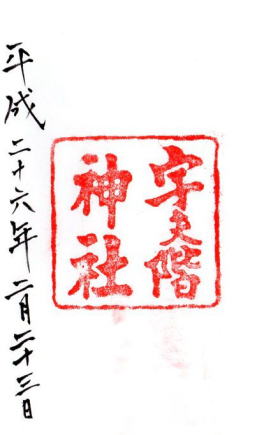 宇夫階
神社
平成二十六年二月二十三日